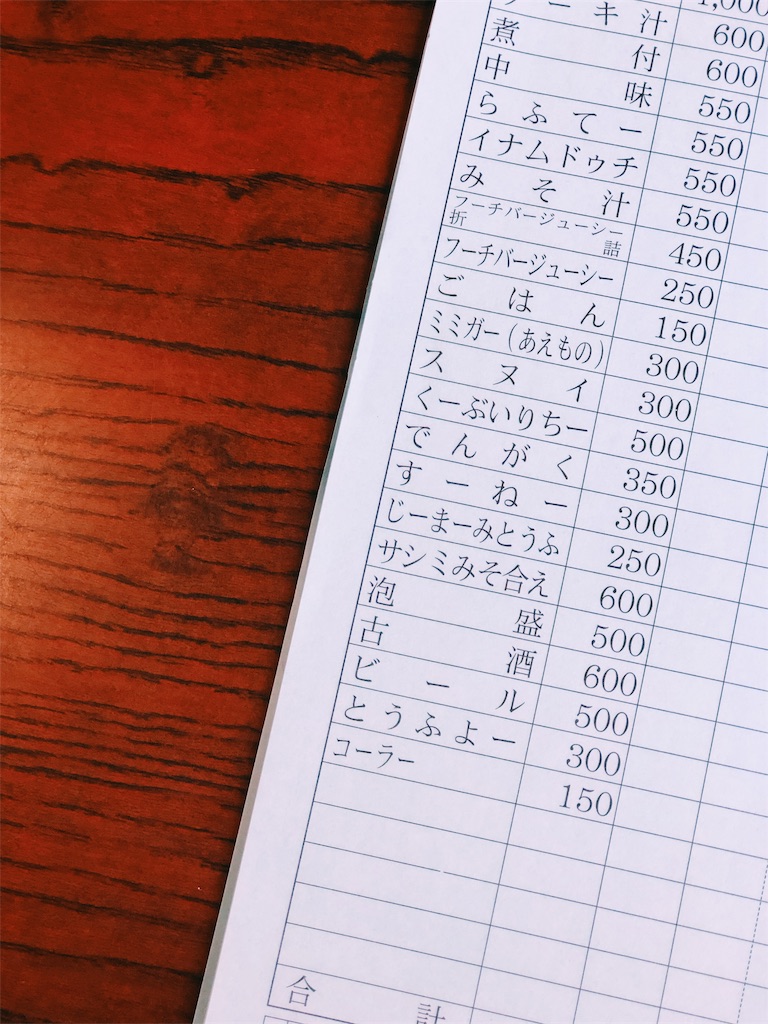 1,000
ーキ汁 600
煮付 600
中味 550
らふてー 550
イナムドゥチ 550
みそ汁 550
フーチバージューシー折詰 450
フーチバージューシー 250
ごはん 150
ミミガー(あえもの) 300
スヌイ 300
くーぶいりちー 500
でんがく 350
すーねー 300
じーまーみとうふ 250
サシミみそ合え 600
泡盛 500
古酒 600
ビール 500
とうふよー 300
コーラー 150
合計